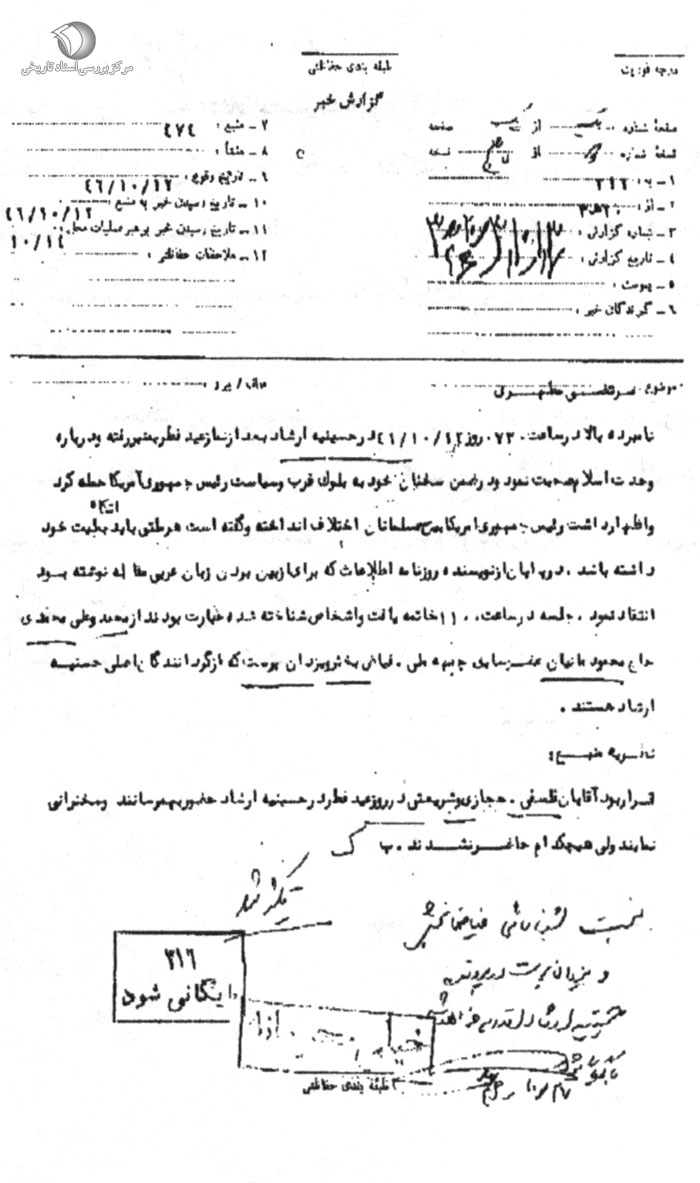 مرکز بررسی اسناد تاریخی
درجه فوریت
طبقه بندی حفاظتی
گزارش خبر
صفحهٔ شماره یک از یک صفحه
نسخهٔ شماره از نسخه
۱ ـ به: ۳۱۶
۲ ـ از: ۲۰ه۳
۳ ـ شماره گزارش:
۴ ـ تاریخ گزارش:
۵ ـ پیوست:
۶ ـ گیرندگان خبر:
۷ ـ منبع: ۴۷۴
۸ ـ منشأ:
۹ ـ تاریخ وقوع: ۴۶/۱۰/۱۲
۱۰ ـ تاریخ رسیدن خبر به منبع: ۴۶/۱۰/۱۲
۱۱ ـ تاریخ رسیدن خبر برهبر عملیات محل: ۱۰/۱۴
۱۲ ـ ملاحظات حفاظتی:
موضوع: مرتضی مطهری
عطف / پیرو:
نامبرده بالا در ساعت ۰۷۳۰ روز ۴۶/۱۰/۱۲ در حسینیه ارشاد بعد از نماز عید فطر بمنبر رفته و درباره
وحدت اسلام صحبت نمود و در ضمن سخنان خود به بلوک غرب و سیاست رئیس جمهوری آمریکا حمله کرد
و اظهار داشت رئیس جمهوری امریکا بین مسلمانان اختلاف انداخته و گفته است هر ملتی باید بملیت خود اتکاء
داشته باشد. در پایان از نویسنده روزنامه اطلاعات که برای ازبین بردن زبان عربی مقاله نوشته بود
انتقاد نمود. جلسه در ساعت ۱۱۰۰ خاتمه یافت و اشخاص شناخته شده عبارت بودند از محمدولی محمدی
حاج محمود مانیان عضو سابق جبهه ملی. فیاض بخش و یزدان پرست که از گردانندگان اصلی حسنیه
ارشاد هستند.
نظریه منبع:
قرار بود آقایان فلسفی. حجازی و شریعتی در روز عید فطر در حسینیه ارشاد حضور بهم رسانند و سخنرانی
نمایند ولی هیچکدام حاضر نشدند. ب ک
تکثیر شد
نسبت بشناسائی فیاض بخش
و یزدان پرست در پرونده
حسینیه ارشاد اقدام خواهد شد
۳۱۶
بایگانی شود
طبقه بندی حفاظتی